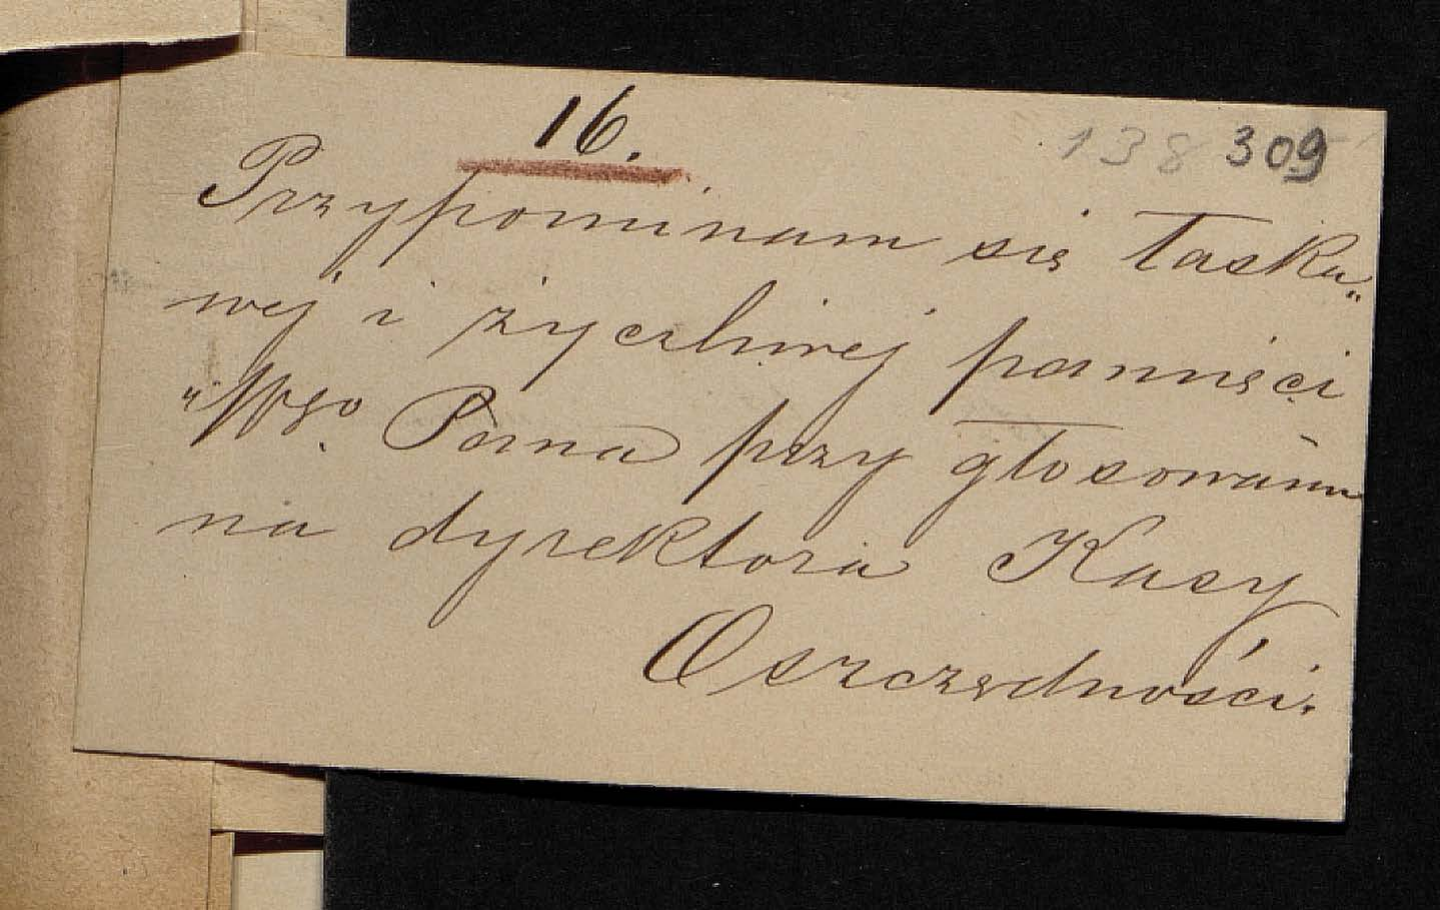 16.
138 309
Przypominam się łaska„
wej i życzliwej pamięci
„Wgo Pana przy głosowaniu
na dyrektora Kasy
Oszczędności.